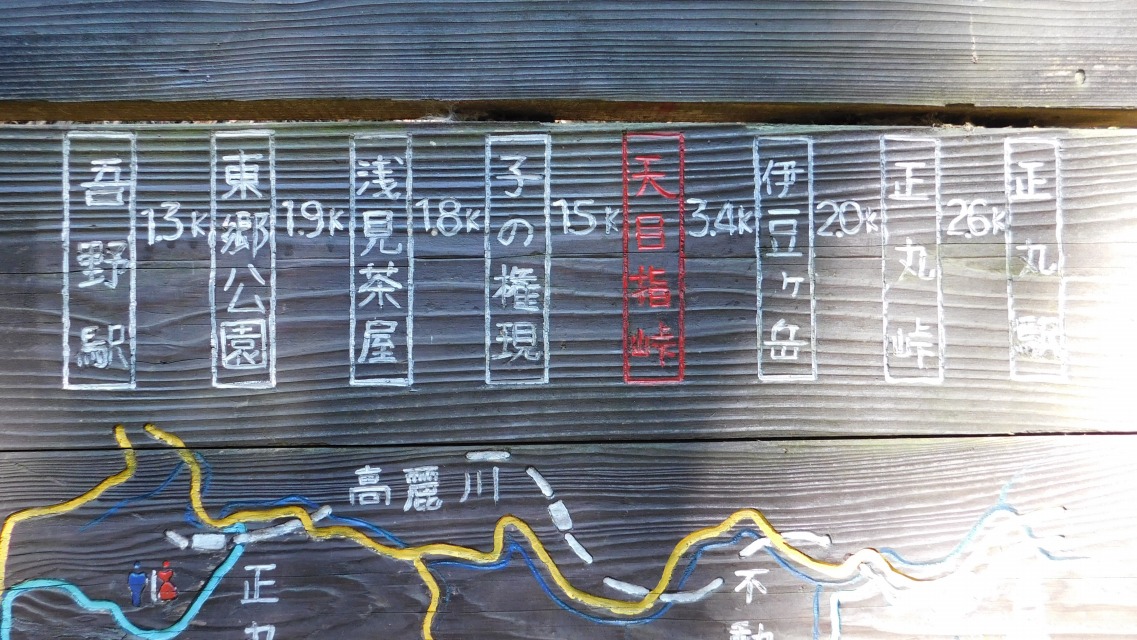 吾野駅
1.3K
東郷公園
1.9K
浅見茶屋
1.8K
子の権現
1.5K
天目指峠
3.4K
伊豆ヶ岳
2.0K
正丸峠
2.6K
正丸駅
高麗川
正丸
不動